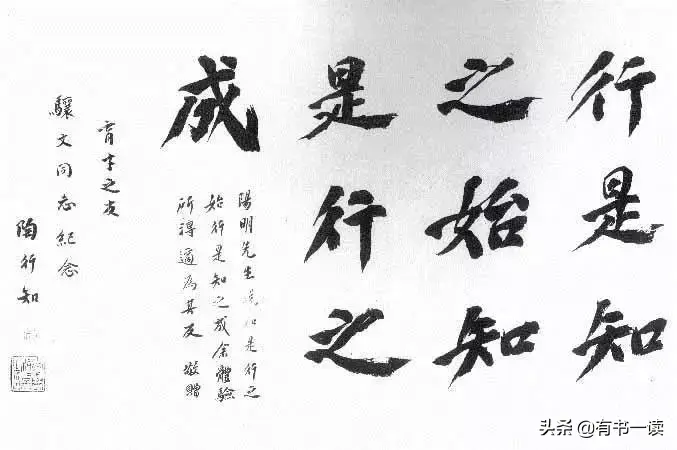 行是知
之始知
是行之
成
陽明先生知是行之
始行是知之成余體驗
所得適為其反 敬贈
育才之友
驤文同志紀念
陶行知
头条 @有书一读